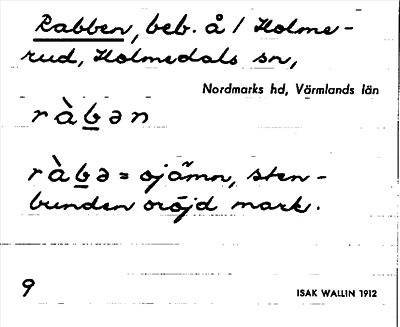 Rabben, beb. å / Holme-
rud, Holmedals sn,
Nordmarks hd, Värmlands län
ràb̲ən
ràb̲ə = ojämn, sten-
bunden oröjd mark.
9
ISAK WALLIN 1912